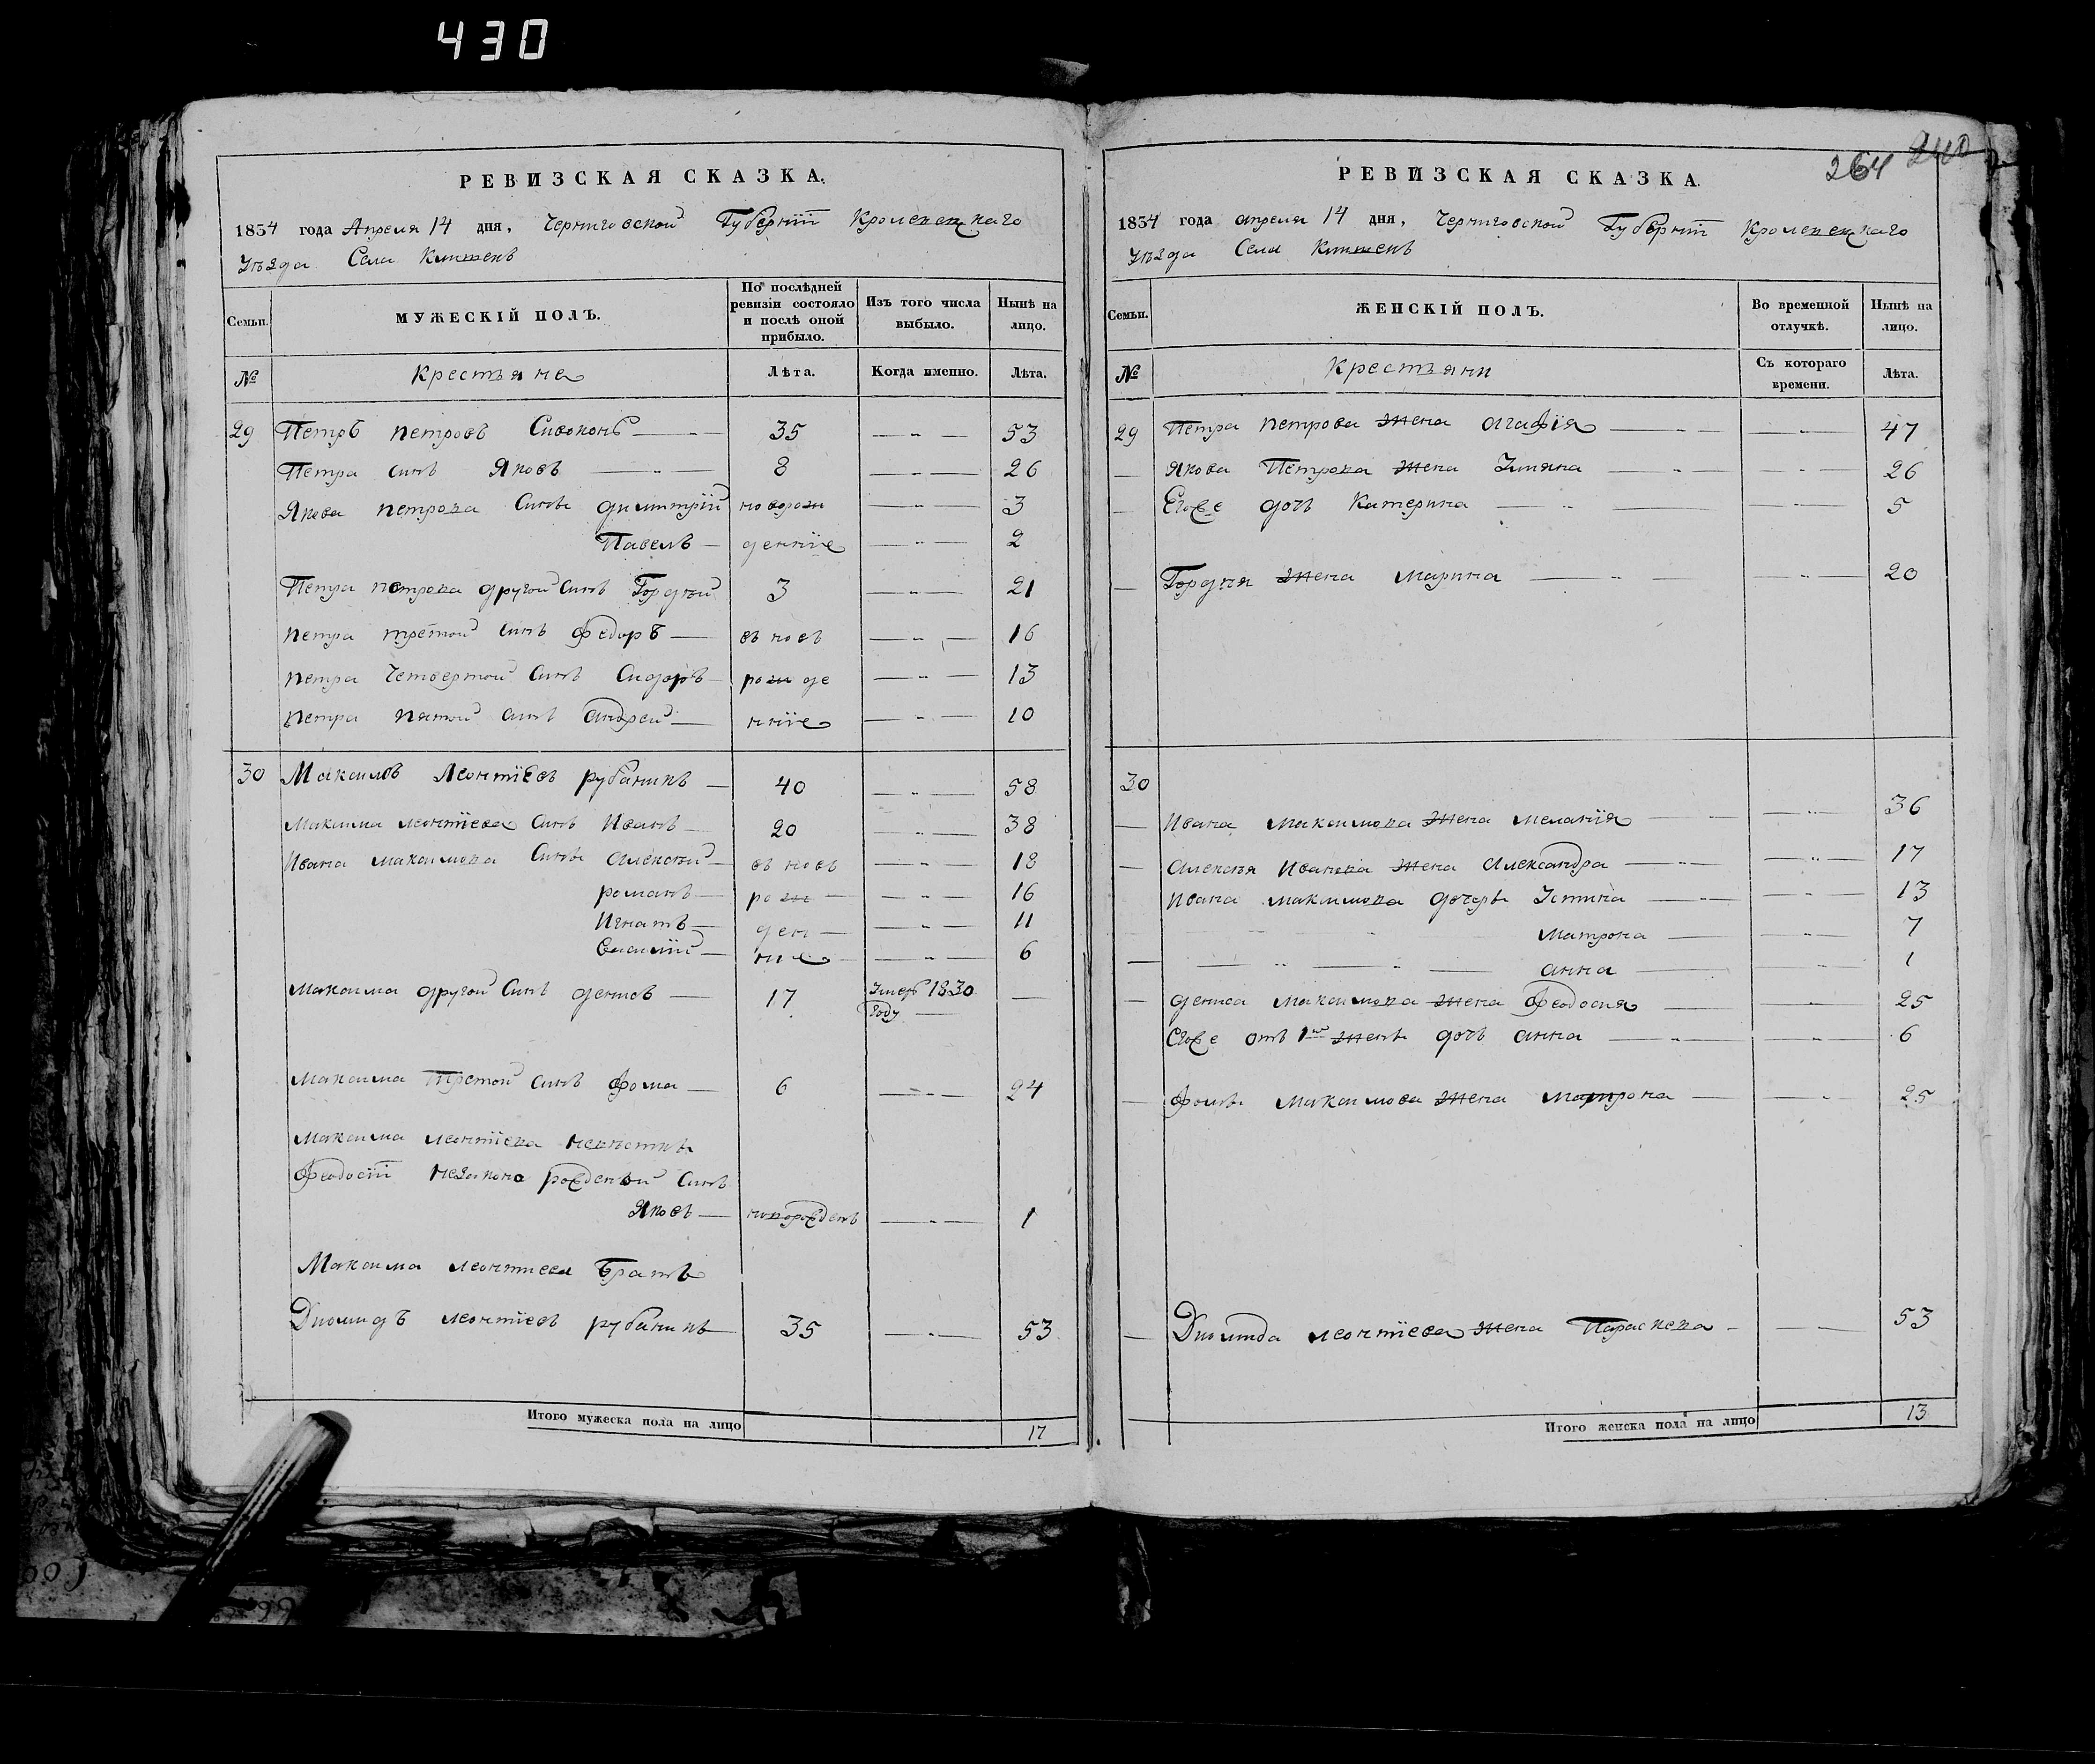 430
РЕВИЗСКАЯ СКАЗКА.
1834 года Апреля 14 дня, Черниговской Губерніи Кролевецкаго
Уѣзда Села
Семьи.
МУЖЕСКІЙ ПОЛЪ.
По послѣдней ревизіи состояло и послѣ оной прибыло.
Изъ того числа выбыло.
Нынѣ на лицо.
№
Крестьяне
Лѣта.
Когда именно.
Лѣта.
29 Петръ Петровъ Сивоконь 35 53
Петра синъ Яковъ 8 26
Якова Петрова Сынъ Димитрій новорож 3
Павелъ денніе 2
Петра Петрова другой синъ Гордѣй 3 21
Петра третой синъ Федоръ въ новъ 16
Петра Четвертой Синъ Сидоръ рожде 13
Петра Пятой синъ Андрей нніе 10
30 Максимъ Леонтіевъ Рубаникъ 40 58
Максима Леонтіева Синъ Иванъ 20 38
Ивана Максимова Синъ Алексѣй въ новъ 18
романъ рож 16
Игнатъ ден 11
Василій ніе 6
Максима другой Синъ Денисъ 17 Умеръ 1830
году
Максима Третой синъ Фома 6 24
Максима Леонтіева невѣстки
Феодосіи незаконо рожденной Синъ
Яковъ новорожденъ 1
Максима Леонтиева Братъ
Диомидъ Леонтіевъ рубаникъ 35 53
Итого мужеска пола на лицо 17
264 240
РЕВИЗСКАЯ СКАЗКА.
1834 года апреля 14 дня, Черниговской Губерніи Кролевецкаго
Уѣзда Села
Семьи.
ЖЕНСКІЙ ПОЛЪ.
Во временной отлучкѣ.
Нынѣ на лицо.
№
Крестьяни
Съ котораго времени.
Лѣта.
29 Петра Петрова жена Агафія 47
Якова Петрова жена Улияна 26
Егове дочь Катерина 5
Гордѣя жена Марина 20
30
Ивана Максимова жена Меланія 36
Алексѣя Иванова жена Александра 17
Ивана Максимова дочеръ Устина 13
Матрона 7
анна 1
Дениса Максимова жена Феодосия 25
Егове отъ 1й жены дочь анна 6
Фомы Максимова жена Матрона 25
Диомида Леонтіева жена Параскева 53
Итого женска пола на лицо 13